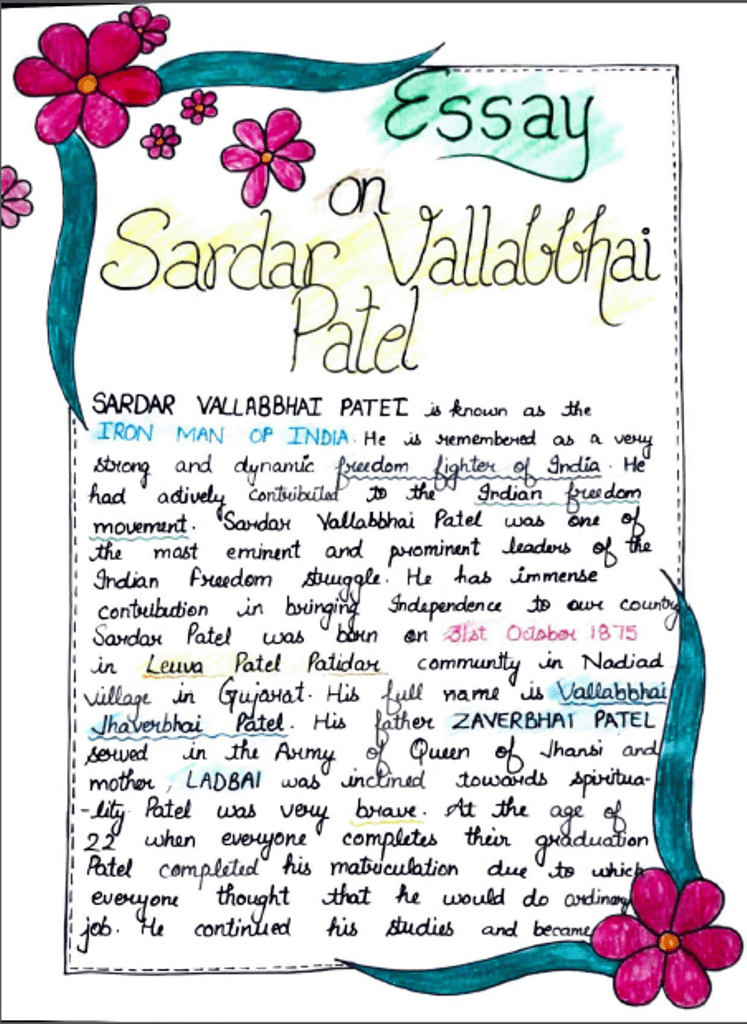 Essay
on
Sardar Vallabbhai
Patel
SARDAR VALLABBHAI PATEL is known as the
IRON MAN OF INDIA. He is remembered as a very
strong and dynamic freedom fighter of India. He
had actively contributed to the Indian freedom
movement. Sardar Vallabbhai Patel was one of
the most eminent and prominent leaders of the
Indian Freedom struggle. He has immense
contribution in bringing Independence to our country
Sardar Patel was born on 31st October 1875
in Leuva Patel Patidar community in Nadiad
village in Gujarat. His full name is Vallabbhai
Jhaverbhai Patel. His father ZAVERBHAI PATEL
served in the Army of Queen of Jhansi and
mother, LADBAI was inclined towards spiritua-
-lity. Patel was very brave. At the age of
22 when everyone completes their graduation
Patel completed his matriculation due to which
everyone thought that he would do ordinary
job. He continued his studies and became